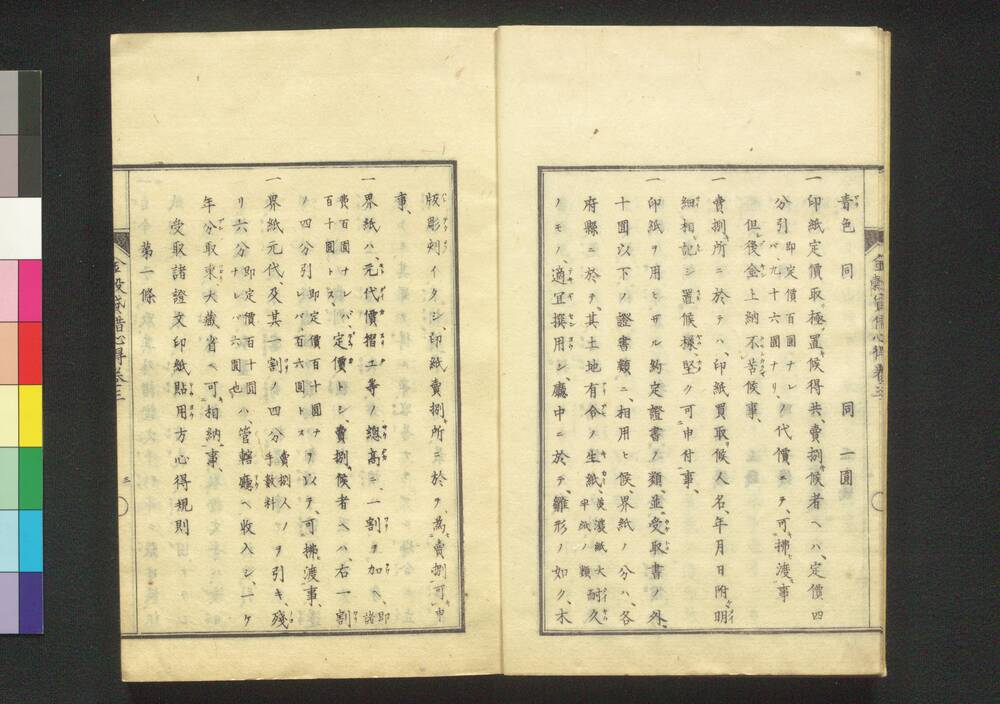 青色　同　　同　一圓
一印紙定價取極置候得共賣捌候者ヘハ、定價四
分引即定價百圓ナレバ、九十六圓ナリ、ノ代價ニテ、可拂渡事
但後金上納不苦候事、
一賣捌所ニ於テハ、印紙買取候人名、年月日附明
細相記シ置候樣、堅ク可申付事、
一印紙ヲ用ヒザル約定證書ノ類、並受取書ノ外、
十圓以下ノ證書類ニ、相用ヒ候、界紙ノ分ハ、各
府縣ニ於テ、其土地有合ノ生紙、美濃紙大半紙ノ類耐久
ノモノ、適宜撰用シ、廳中ニ於テ、雛形ノ如ク、木
版彫刻イタシ、印紙賣捌所ニ於ヲ、為賣捌可申
事、
一界紙ハ、元代價摺工等ノ總高ニ、一割ヲ加ヘ、即諸
費百圓ナレバ、百十圓トス、定價トシ、賣捌候者ヘハ、右一割
ノ四分引即定價百十圓ナレバ、百六圓トスヲ以テ、可拂渡事、
一界紙元代、及其一割ノ四分賣捌人ノ手數料ヲ引キ、殘
リ六分即定價百十圓ナレバ六圓也ハ管轄廳ヘ收入シ、一ケ
年分取束、大藏省ヘ可相納事、
受取諸證文印紙貼用方心得規則
第一條
金穀貸借心得卷三
二
金穀貸借心得卷三